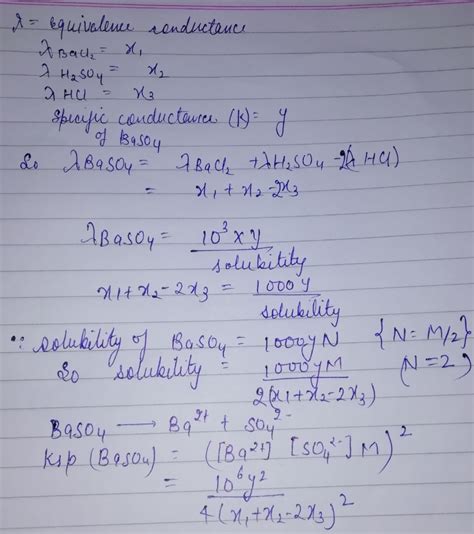 λ = Equivalence conductance
λ BaCl2 = x1
λ H2SO4 = x2
λ HCl = x3
Specific conductance (K) = y
of BaSO4
So λBaSO4 = λBaCl2 + λH2SO4 - 2(λ HCl)
= x1 + x2 - 2x3
λBaSO4 = 10^3 x y / solubility
x1 + x2 - 2x3 = 1000y / solubility
∵ solubility of BaSO4 = 1000yN {N = M/2}
So solubility = 1000yM / 2(x1+x2-2x3) (N=2)
BaSO4 ⟶ Ba^2+ + SO4^2-
Ksp (BaSO4) = ([Ba^2+] [SO4^2-] M)^2
= 10^6y^2 / 4(x1+x2-2x3)^2